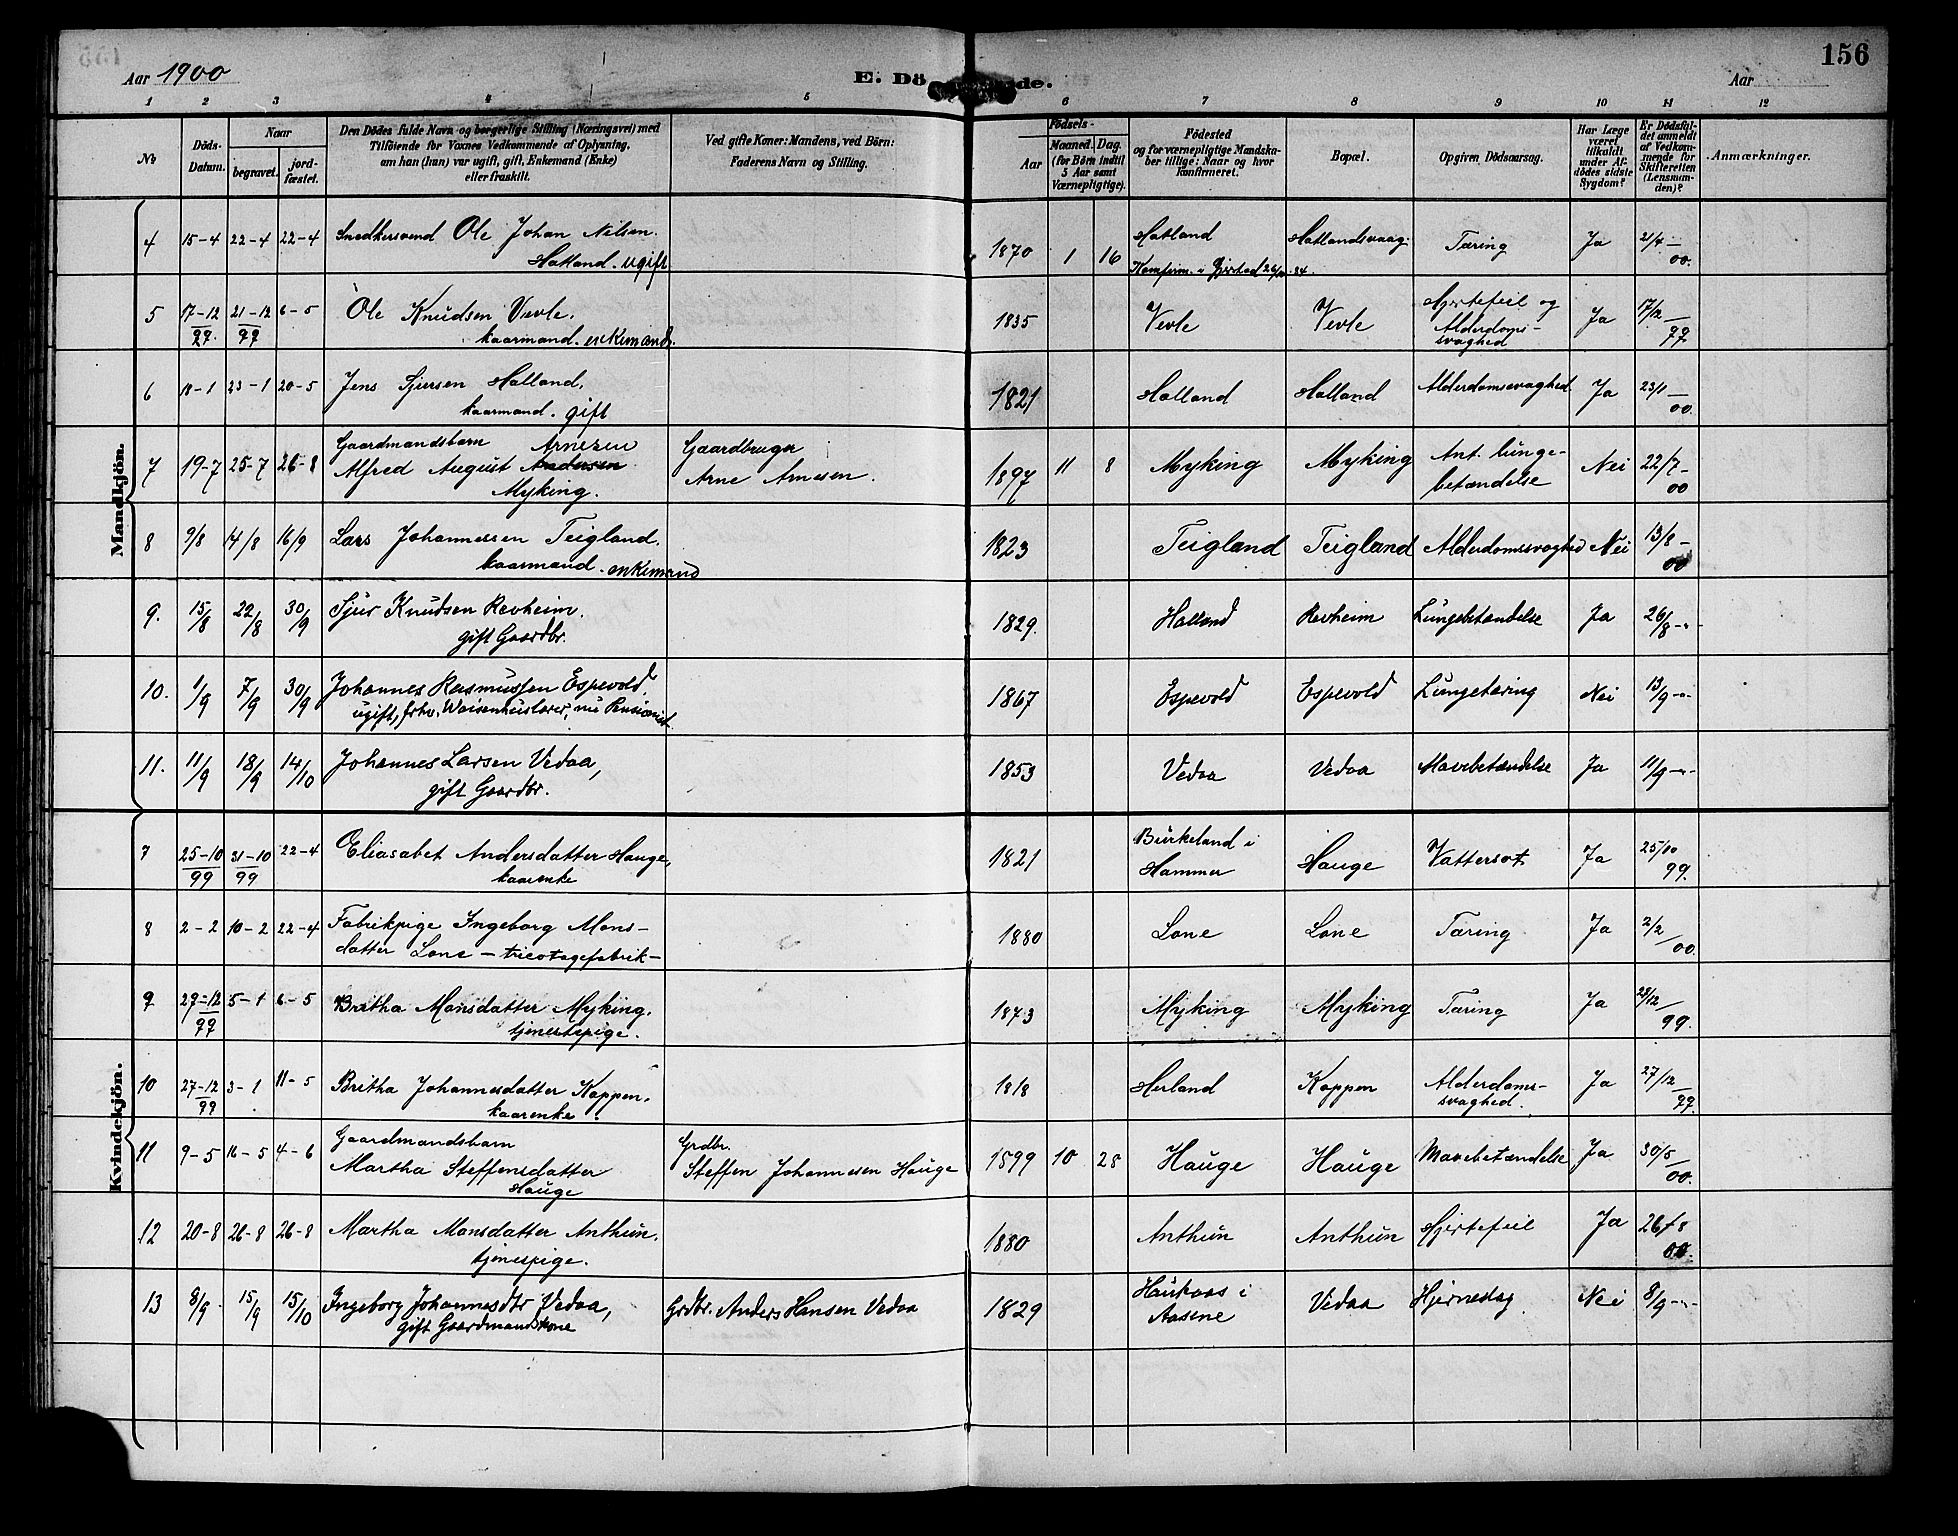 156
Aar 1900
E. Dö de.
Aar
1 2 3 4 5 6 7 8 9 10 11 12
No
Döds-Datum.
Naar
begravet.
jord-fæstet.
Den Dödes fulde Navn og borgerlige Stilling (Næringsvei) med
Tilföiende for Voxnes Vedkommende af Oplysning,
om han (hun) var ugift, gift, Enkemand (Enke)
eller fraskilt.
Ved gifte Koner: Mandens, ved Börn:
Faderens Navn og Stilling.
Födsels-
Aar
Maaned. Dag.
(for Börn indtil
5 Aar samt
Værnepligtige).
Födested
og for værnepligtige Mandska-
ber tillige: Naar og hvor
konfirmeret.
Bopæl.
Opgiven Dödsaarsag.
Har Læge
været
tilkaldt
under Af-
dödes sidste
Sygdom?
Er Dödsfal-
det anmeldt
af Vedkom-
mende for
Skifteretten
(Lensman-
den)?
Anmærkninger.
Mandkjön.
4 15-4 22-4 22-4 Snedkersvend Ole Johan Nilsen 1870 1 16 Hatland Hatlandsvaag. Tæring Ja 21/4 -
Hatland. ugift Konfirm. i Gjerstad 84. 00.
5 17-12 21-12 6-5 Ole Knudsen Vevle. 1835 Vevle Vevle Hjertefeil og Ja 17/12 -
99. 99 kaarmand. enkemand. Alderdoms- 99
svaghed
6 18-1 23-1 20-5 Jens Sjursen Hatland, 1821 Hatland Hatland Alderdomssvaghed. Ja 23/1 -
kaarmand. gift 00.
Gaardmandsbarn Arnesen Gaardbruger
7 19-7 25-7 26-8 Alfred August Andersen Arne Arnesen. 1897 11 8 Myking Myking Ant. lunge- Nei 22/7 -
Myking. betændelse 00
8 9/8 14/8 16/9 Lars Johannessen Teigland. 1823 Teigland Teigland Alderdomssvaghed Nei 13/8 -
kaarmand. enkemand 00
9. 15/8 22/8 30/9 Sjur Knudsen Revheim. 1829. Hatland Revheim Lungebetændelse Ja 26/8 -"-
gift Gaardbr.
10. 1/9 7/9 30/9 Johannes Rasmussen Espevold, 1867 Espevold Espevold Lungetæring Nei 13/9 -"-
ugift, frhv. Waisenhuslærer, nu Pensionist
11. 11/9 18/9 14/10 Johannes Larsen Vedaa, 1853 Vedaa Vedaa Mavebetændelse Ja 11/9 -"-
gift Gaardbr.
Kvindekjön.
7 25-10 31-10 22-4 Eliasabet Andersdatter Hauge, 1821 Burkeland i Hauge Vattersot Ja 25/10
99 99 kaarenke Hammer 99.
8 2-2 10-2 22-4 Fabrikpige Ingeborg Mons- 1880 Lone Lone Tæring Ja 2/2
datter Lone - tricotagefabrik - 00.
9 29-12 5-1 6-5 Britha Monsdatter Myking. 1873 Myking Myking Tæring Ja 29/12
99 tjenestepige. 99.
10 27-12 3-1 11-5 Britha Johannesdatter Koppen. 1818 Herland Koppen Alderdoms- Ja 27/12 -
99 kaarenke. svaghed. 99.
Gaardmandsbarn Grdbr.
11 9-5 16-5 4-6 Martha Steffensdatter Steffen Johannesen Hauge 1899 10 28 Hauge Hauge Mavebetændelse Ja 30/5
Hauge 00.
12 20-8 26-8 26-8 Martha Monsdatter Anthun. 1880 Anthun Anthun Hjertefeil Ja 26/8
tjenespige. 00.
13 8/9 15/9 15/10 Ingeborg Johannesdtr Vedaa, Grdbr. Anders Hansen Vedaa 1829 Haukaas i Vedaa Hjerneslag Nei 8/9 -"-
gift Gaardmandskone Aasene